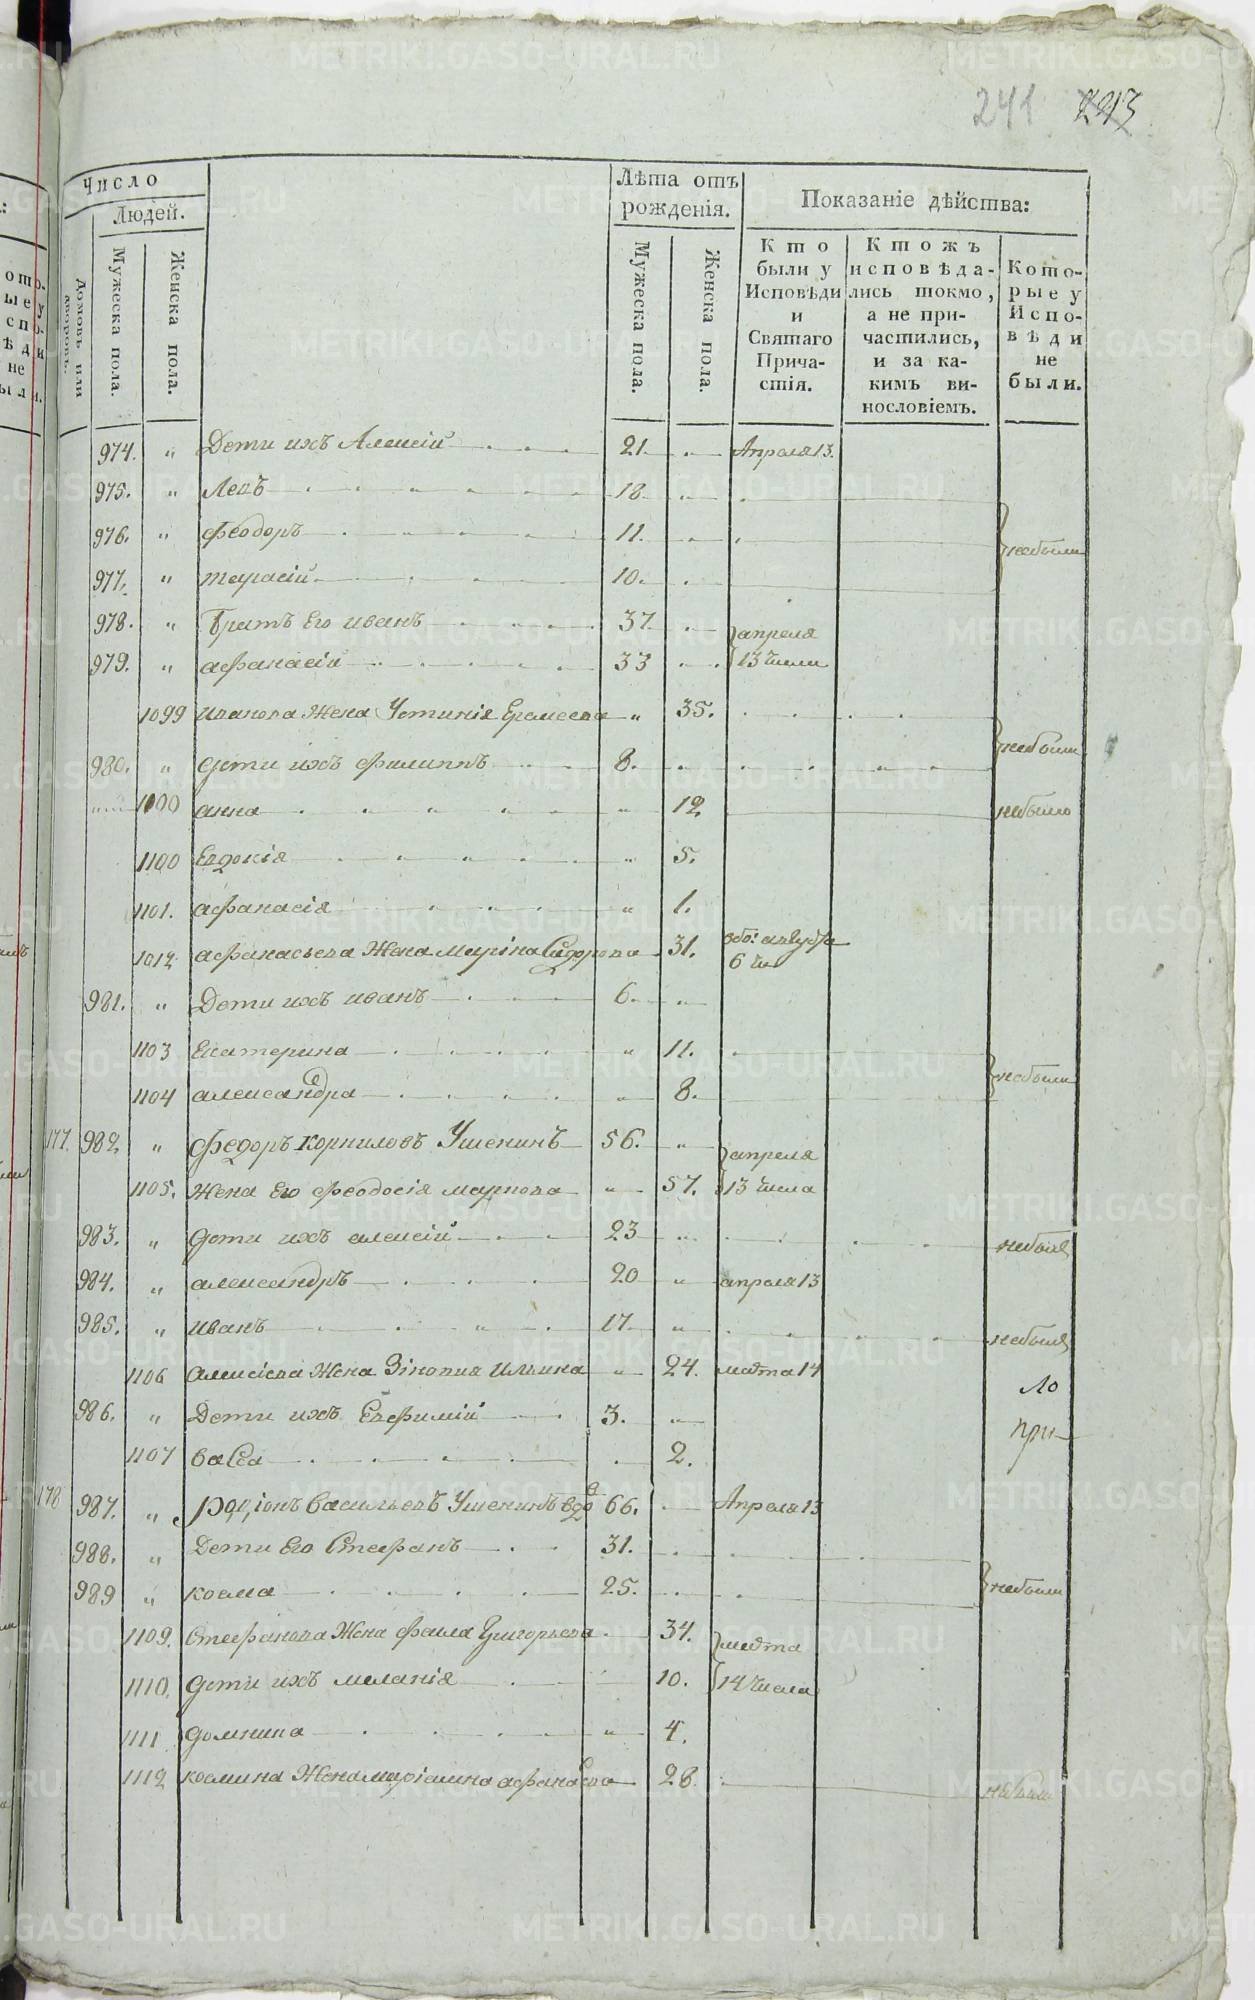 241 213
Число
Людей.
Домовъ или дворовъ.
Мужеска пола.
Женска пола.
Лѣта отъ рожденія.
Мужеска пола.
Женска пола.
Показаніе дѣйства:
Кто были у Исповѣди и Святаго Причастія.
Ктожъ исповѣдались токмо, а не причастились, и за какимъ винословіемъ.
Которые у Исповѣди не были.
974. " Дети ихъ Алексій 21. Апреля 13.
975. " Левъ 18
976. " Феодоръ 11. небыли
977. " 10.
978. " Братъ Его иванъ 37 апреля
979. " афанасій 33 13 числа
1099 иванова Жена Устинія Ермеева " 35.
980. " дети ихъ филиппъ 8. небыли
1100 анна " 12 небыло
1100 Евдокія " 5.
1101. афанасія " 1.
1012 афанасьева Жена Сидорова 31. августа 6
981. " Дети ихъ иванъ 6. "
1103 Екатерина " 11.
1104 александра " 8. небыли
177. 982. " Федоръ Корниловъ Ушенинъ 56. " апреля
1105. Жена Его Феодосія маркова " 57. 13 числа
983. " дети ихъ алексій 23 " небыля
984. " александръ 20 " апреля 13
985. " иванъ 17. " небыля
1106 алексіева Жена Зіновия Ильина " 24. марта 14
Ло
986. " Дети ихъ Евфимій 3. "
при
1107 васса 2.
178 987. " Родіонъ васильевъ Ушенинъ вдо 66. Апреля 13
988. " Дети Его Стефанъ 31.
989 " косма 25. небыли
1109. Стефанова Жена Фекла Григорьева 34. марта
1110. дети ихъ меланія 10. 14 числа
1111 домнина " 4.
1112 космина Жена маріамна афанасьева 28. небыли
METRIKI.GASO-URAL.RU